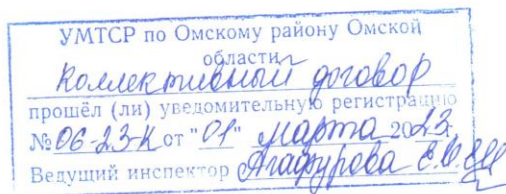 УМТСР по Омскому району Омской
области
Коллективный договор
прошёл (ли) уведомительную регистрацию
№ 06-23-К от "01" марта 2023.
Ведущий инспектор Агафурова Е.Ю.